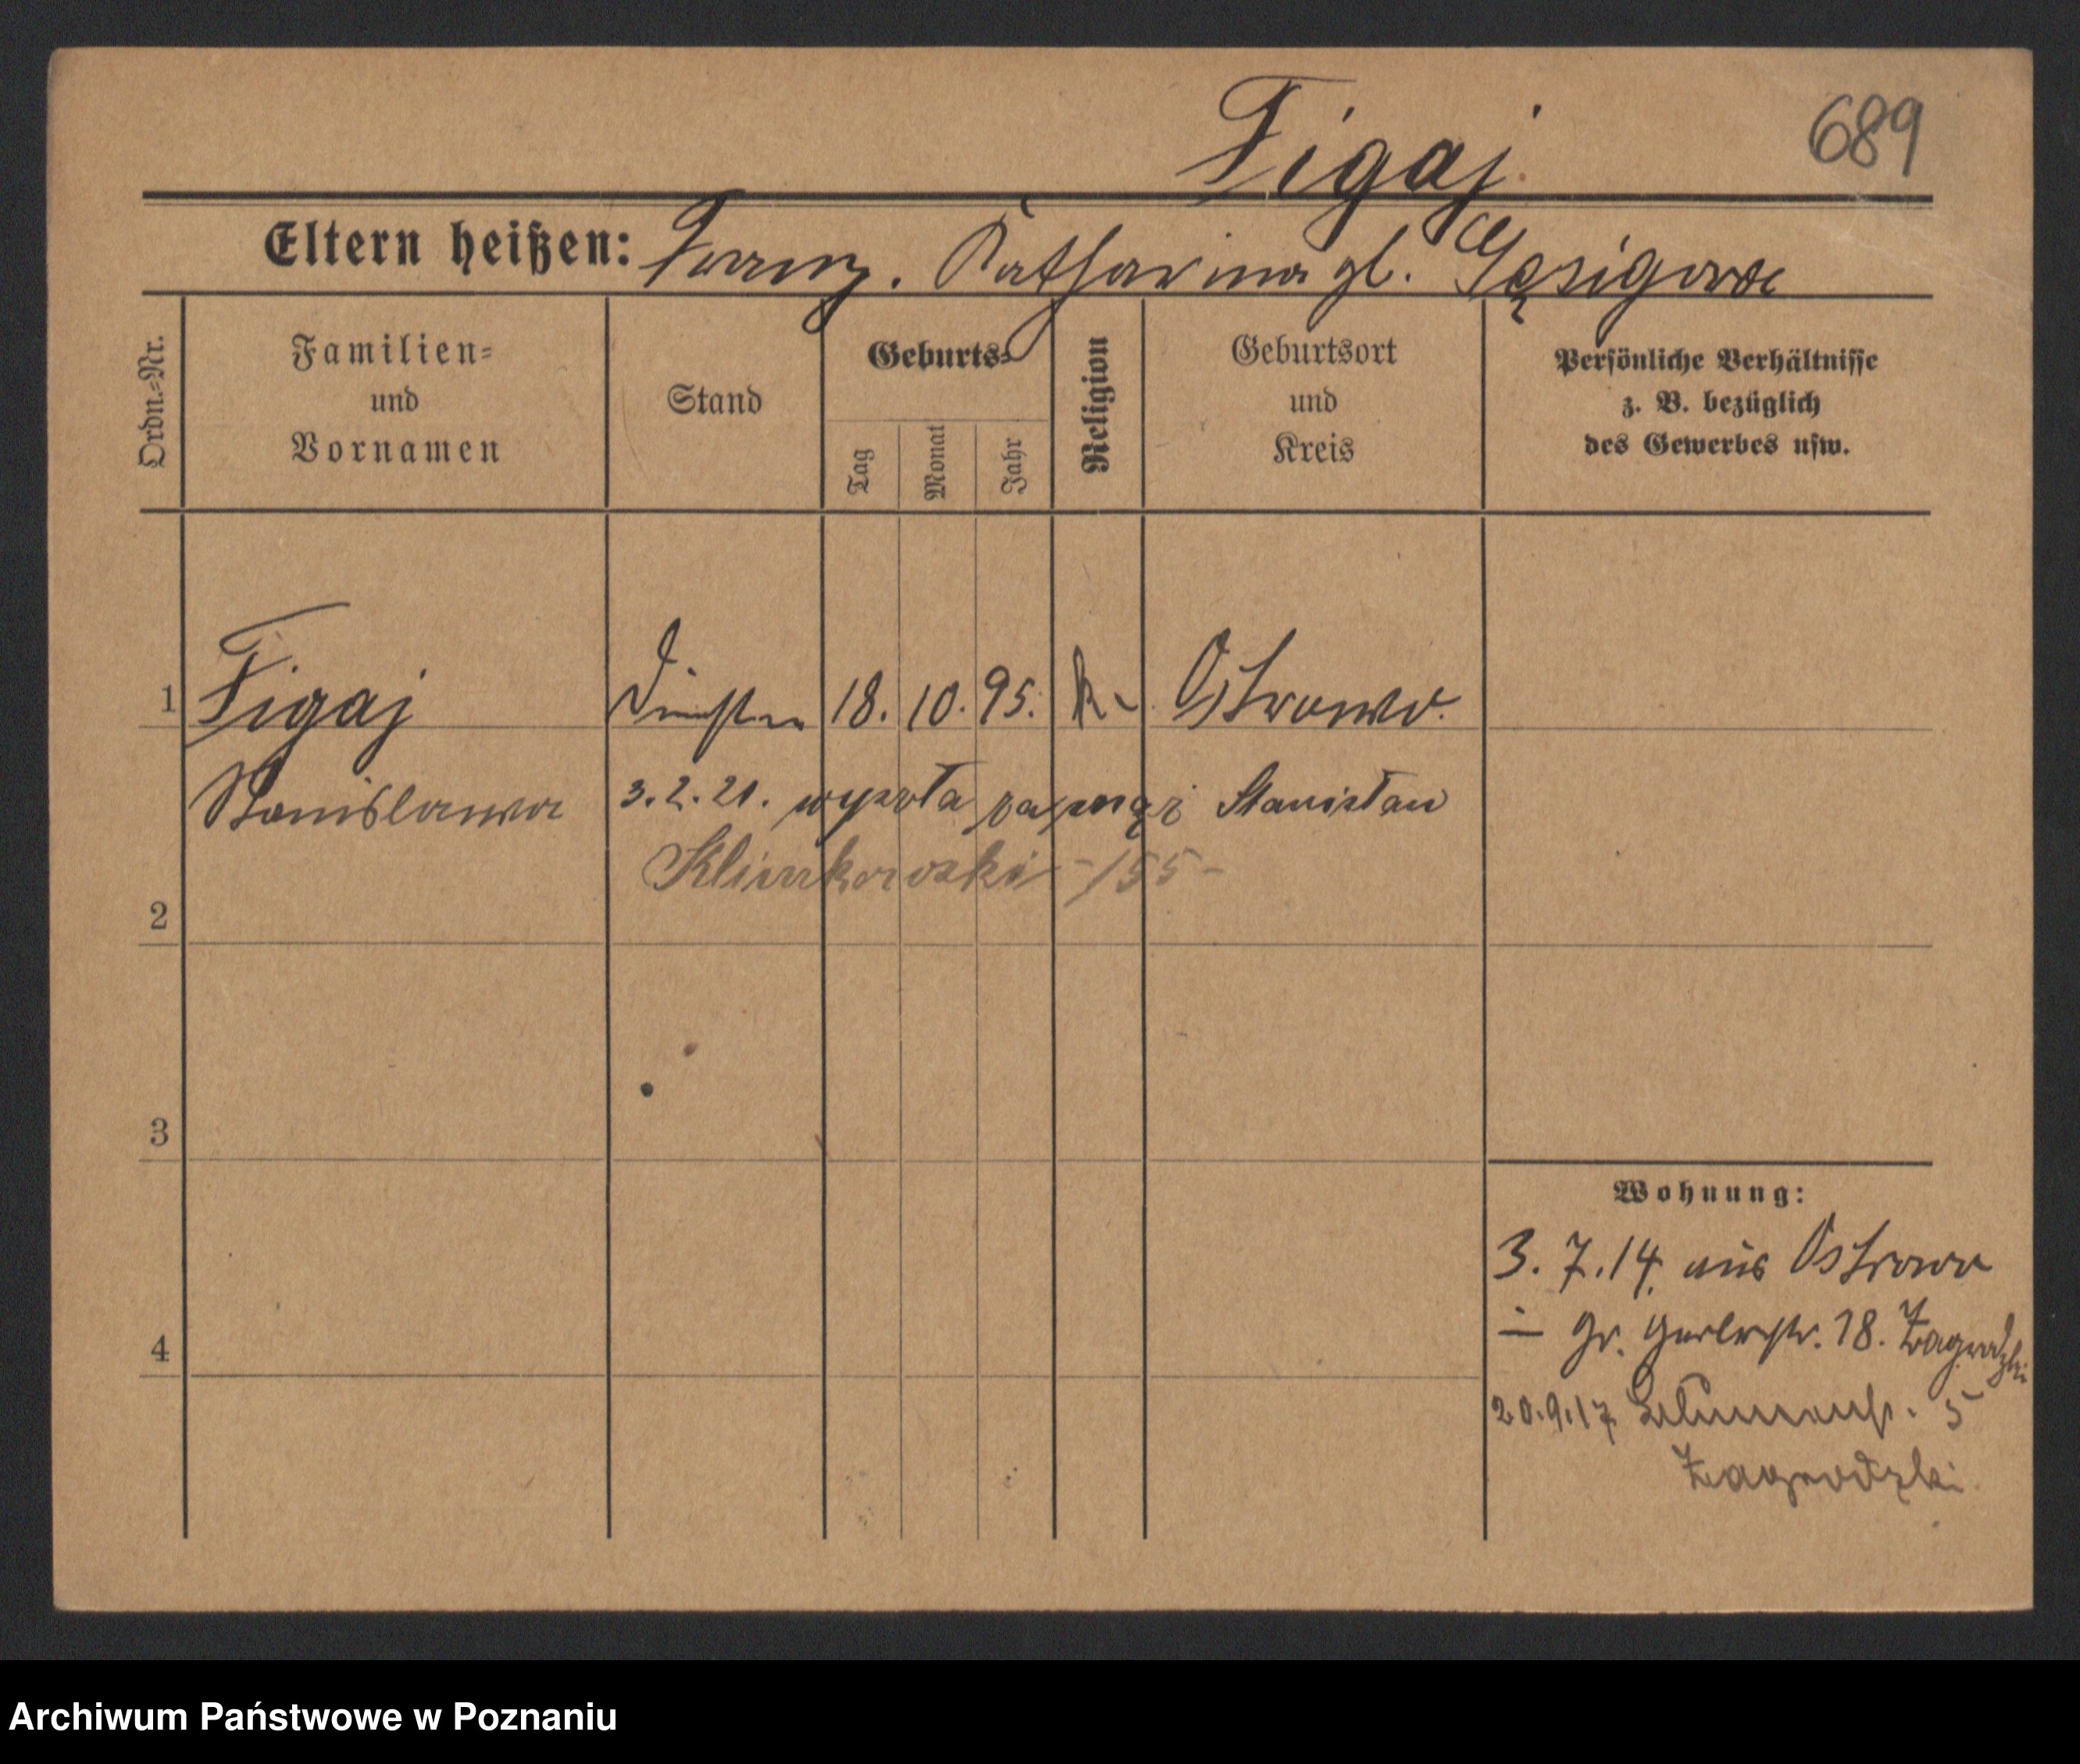 Figaj
689
Eltern heißen: Franz. Katharina gb.
Ordn.=Nr.
Familien=
und
Vornamen
Stand
Geburts=
Tag
Monat
Jahr
Religion
Geburtsort
und
Kreis
Persönliche Verhältnisse
z. B. bezüglich
des Gewerbes usw.
1 Figaj 18. 10. 95. k. Ostrowo.
Stanislawa 3.2.21. wyszła za mąż Stanisław
Klimkowski -155-
2
3
4
Wohnung:
3. 7. 14. aus Ostrowo
Gr. Gerberstr. 18. Zagrodzki
20.9.17. 5
Zagrodzki
Archiwum Państwowe w Poznaniu